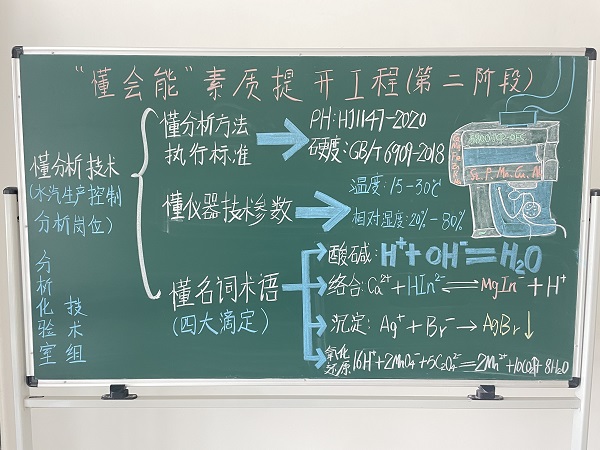 “懂会能”素质提升工程(第二阶段)
懂分析技术
(水汽生产控制
分析岗位)
分析化验室
技术组
懂分析方法
执行标准
PH:HJ1147-2020
硬度:GB/T 6909-2018
懂仪器技术参数
温度:15-30℃
相对湿度:20%-80%
懂名词术语
(四大滴定)
酸碱:H⁺+OH⁻=H₂O
络合:Ca²⁺+HIn²⁻⇌MgIn⁻+H⁺
沉淀:Ag⁺+Br⁻→AgBr↓
氧化
还原
16H⁺+2MnO₄⁻+5C₂O₄²⁻=2Mn²⁺+10CO₂↑+8H₂O
Si, P, Mn, Cu, Al